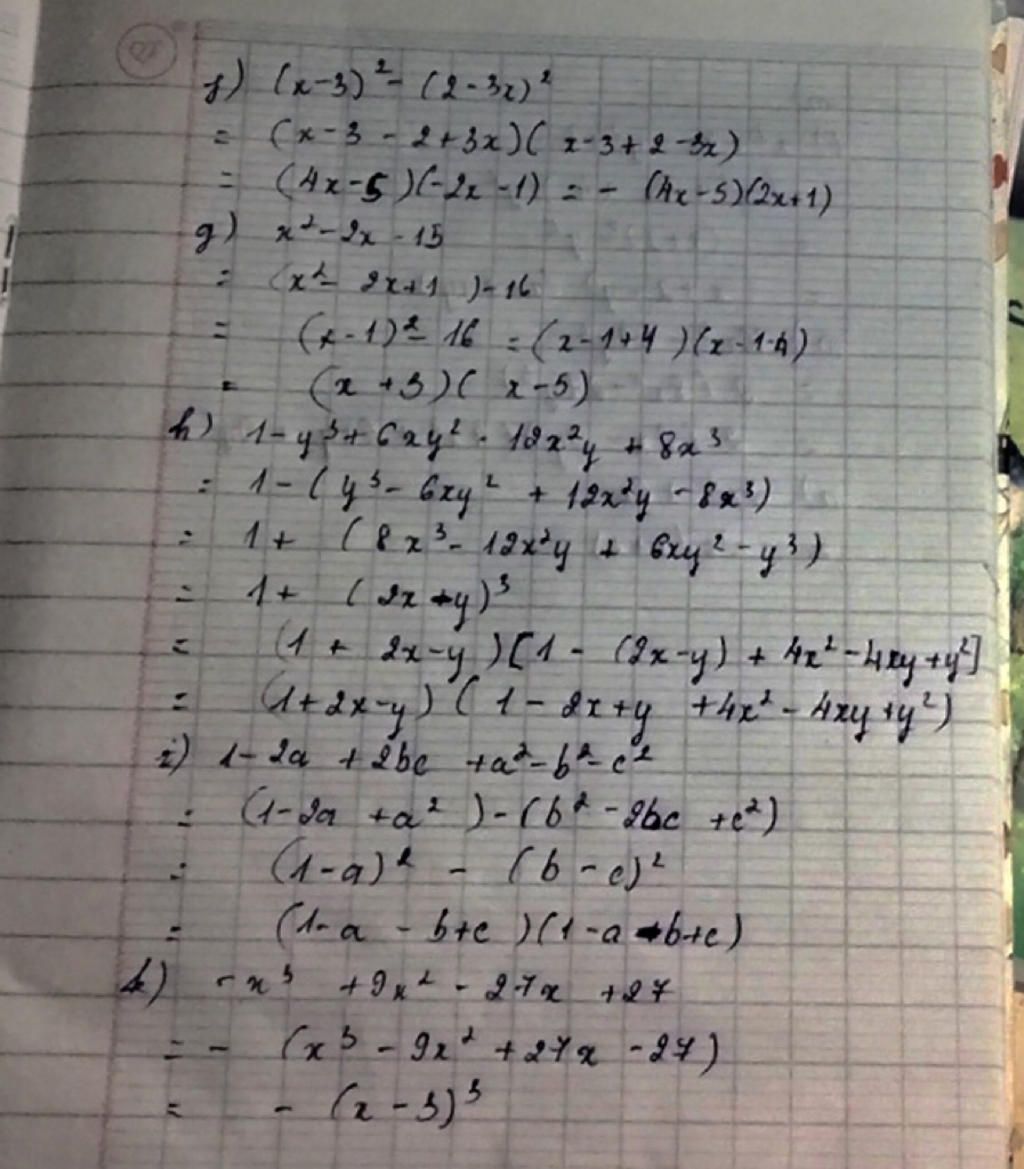 f) (x-3)² - (2-3x)²
= (x-3 - 2+3x)( x-3+2-3x)
= (4x-5)(-2x-1) = - (4x-5)(2x+1)
g) x²-2x-15
= (x²- 2x+1 )-16
= (x-1)²- 16 = (x-1+4 )(x-1-4)
= (x +3)( x-5)
h) 1-y³+6xy² - 12x²y + 8x³
= 1-( y³- 6xy² + 12x²y - 8x³)
= 1+ (8x³- 12x²y + 6xy² - y³)
= 1+ (2x-y)³
= (1+ 2x-y )[1 - (2x-y) + 4x²-4xy+y²]
= (1+2x-y) (1- 2x+y +4x²- 4xy+y²)
i) 1-2a +2bc +a²-b²-c²
= (1-2a +a² )-(b² -2bc +c²)
= (1-a)² - (b-c)²
= (1-a - b+c )(1-a+b+c)
k) -x³ +9x² - 27x +27
= - (x³ - 9x² +27x -27)
= - (x-3)³